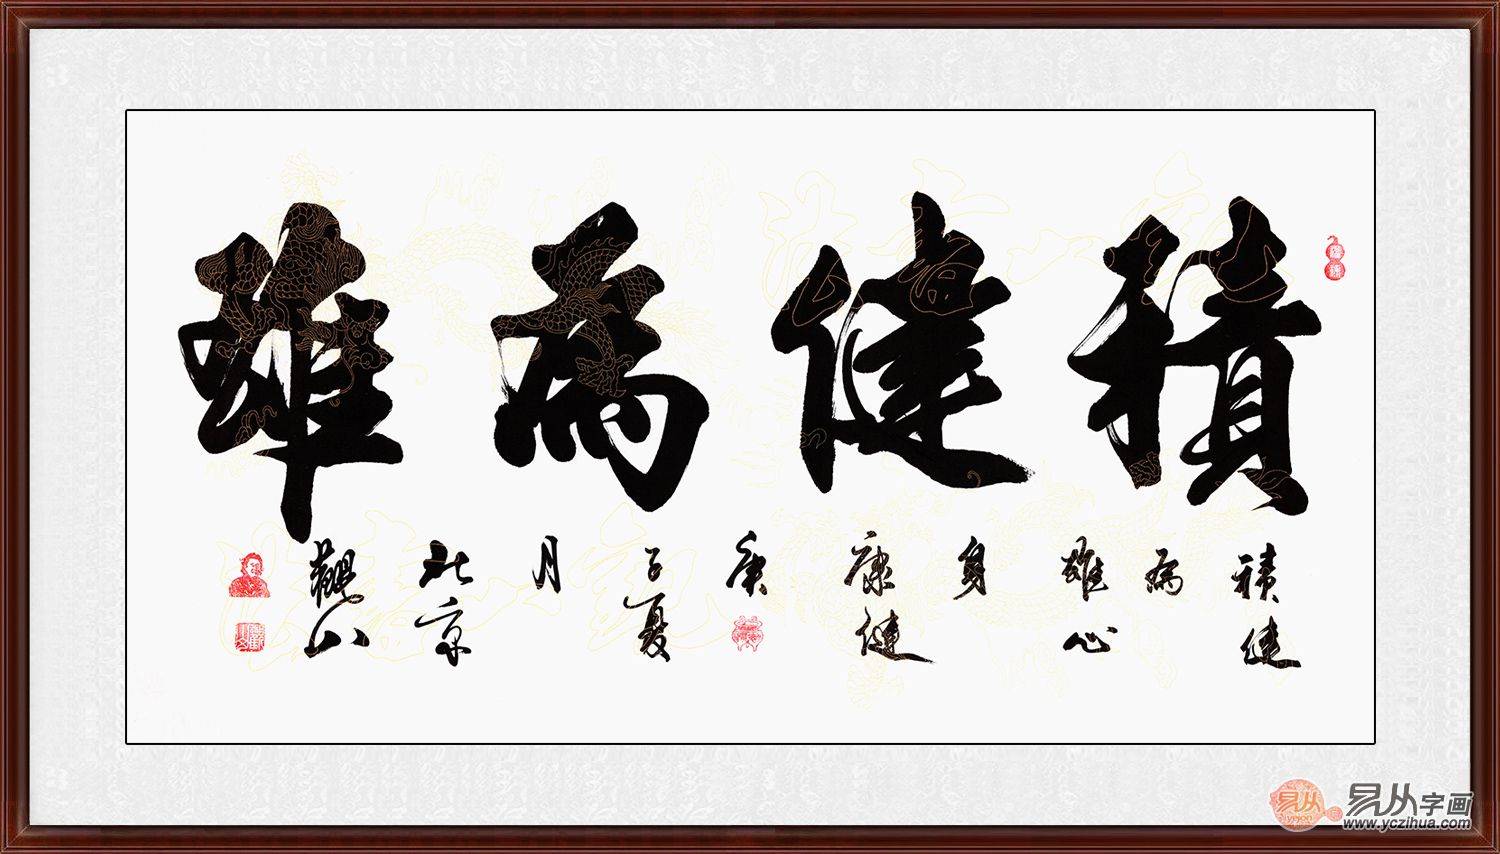 積健為雄
積健
為
雄心
身
康健
庚
子夏
月
北京
觀山
易从
yejon
易从字画
www.yczihua.com